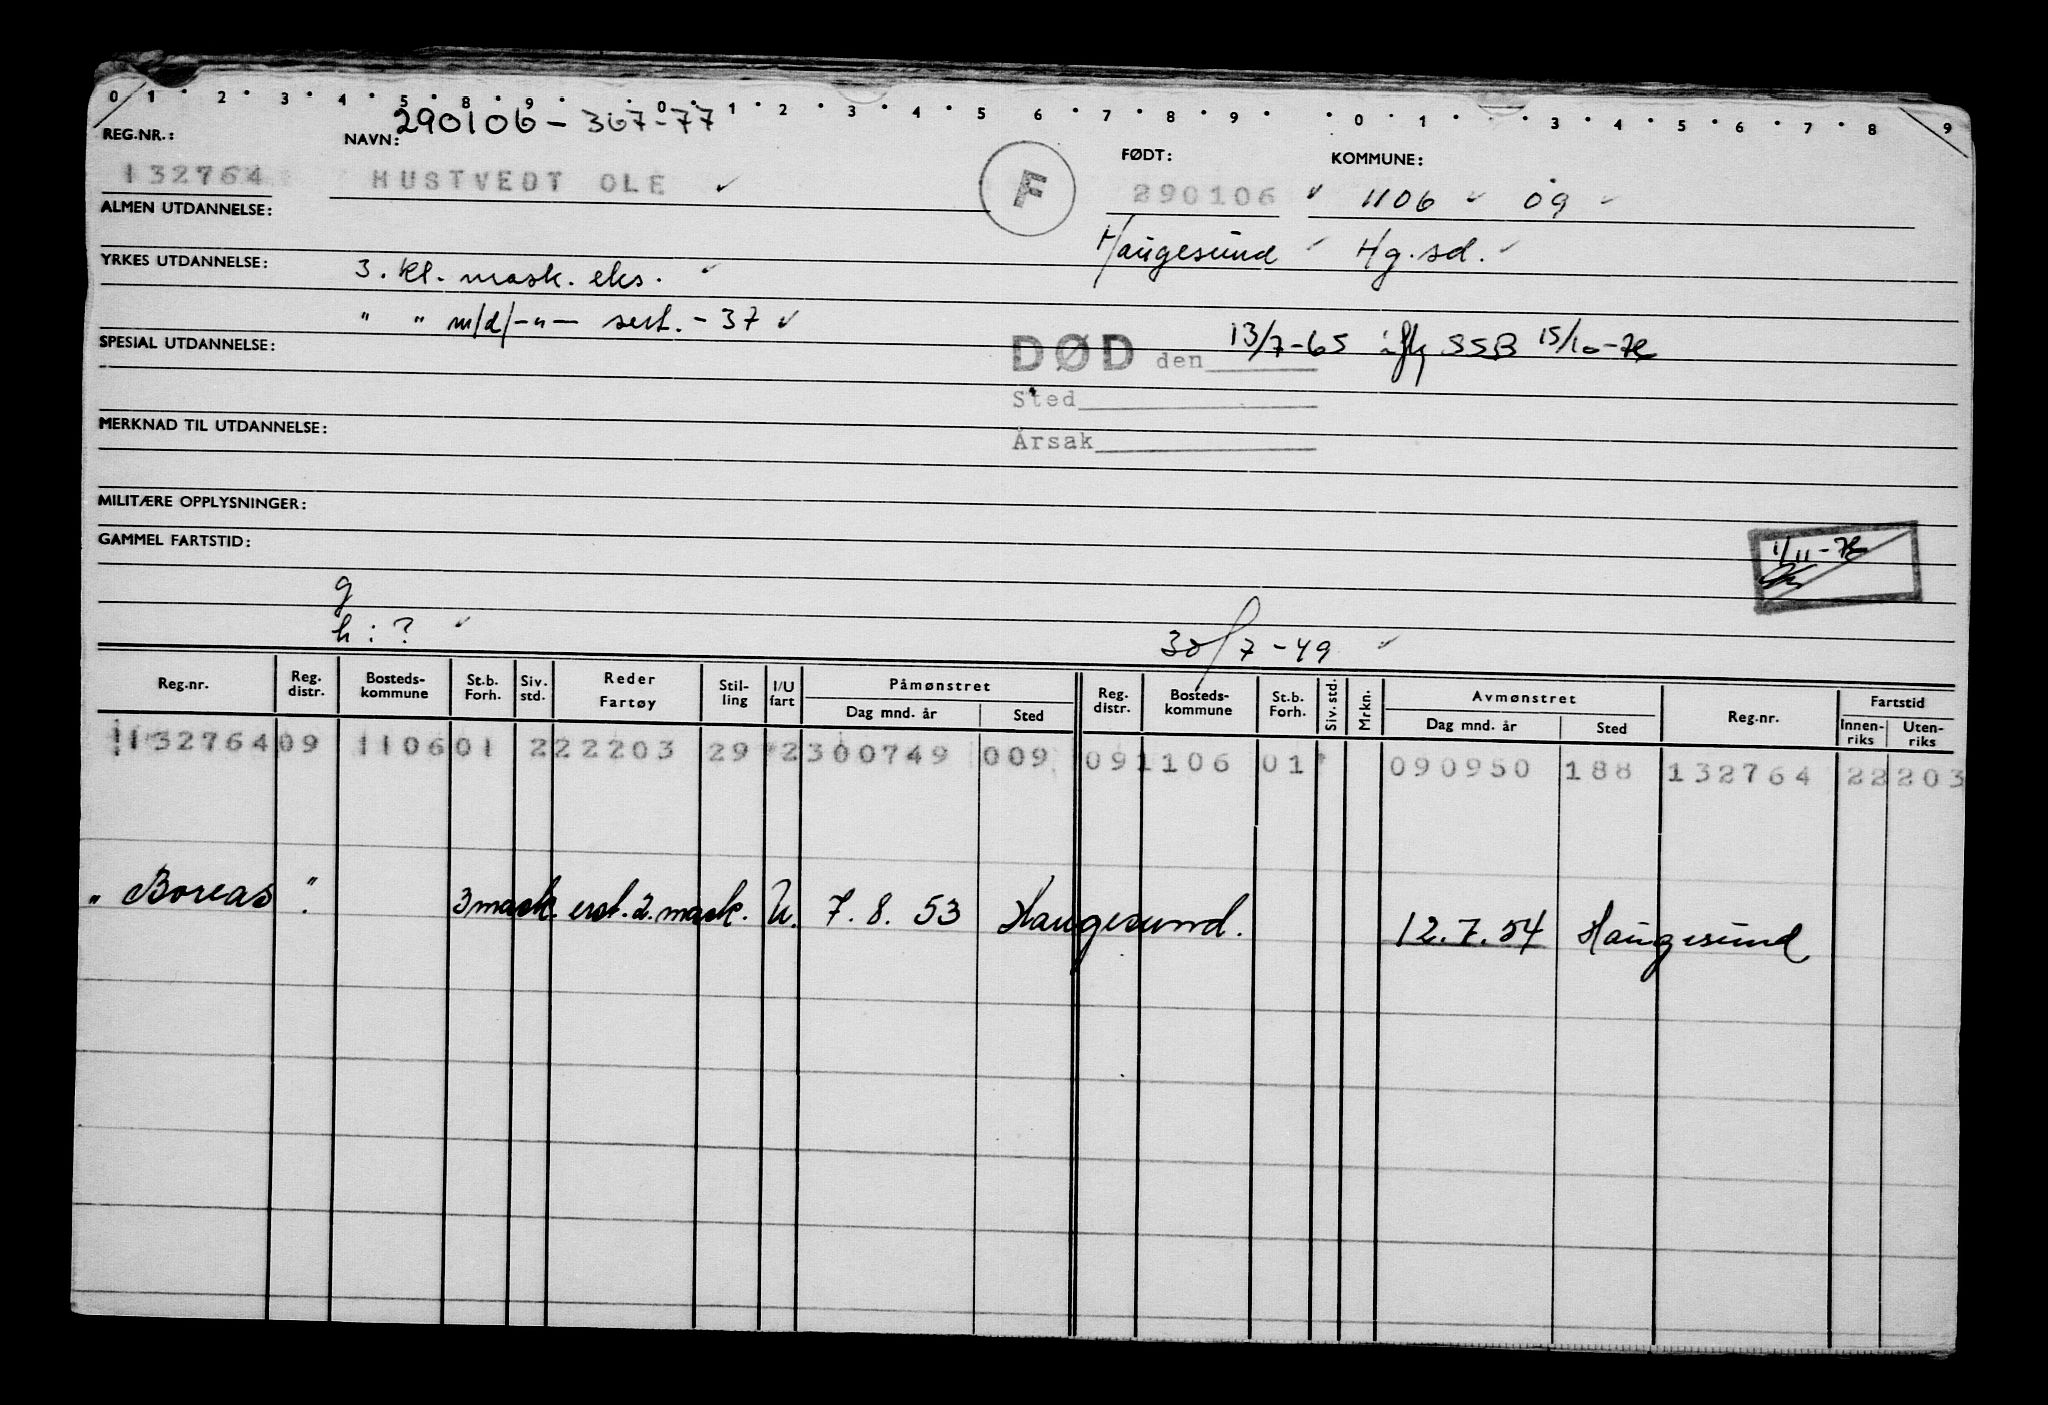 0 1 2 3 4 5 8 9 0 1 2 3 4 5 6 7 8 9 0 1 3 4 5 6 7 8 9
290106-367-77
REG.NR.: NAVN: FØDT: KOMMUNE:
132764 HUSTVEDT OLE F 290106 1106 09
ALMEN UTDANNELSE: Haugesund Hg.sd.
YRKES UTDANNELSE: 3. kl. mask. eks.
" " m/d/-"- sert. - 37
SPESIAL UTDANNELSE: DØD den 13/7-65 iflg SSB 15/10-72
Sted
MERKNAD TIL UTDANNELSE: Årsak
MILITÆRE OPPLYSNINGER:
GAMMEL FARTSTID: 1/11-72
g
h: ? 30/7-49
Reg.nr. Reg. distr. Bosteds-kommune St.b. Forh. Siv. std. Reder Fartøy Stil-ling I/U fart Påmønstret Dag mnd. år Sted Reg. distr. Bosteds-kommune St.b. Forh. Siv. std. Mrkn. Avmønstret Dag mnd. år Sted Reg.nr. Fartstid Innen-riks Uten-riks
132764 09 1106 01 2 22203 29 2 300749 009 09 1106 01 090950 188 132764 22203
"Boreas" 3 mask. erst. 2. mask. U. 7. 8. 53 Haugesund. 12. 7. 54 Haugesund